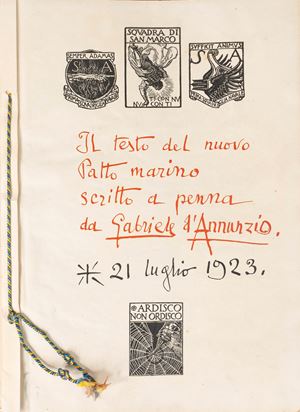 SEMPER ADAMAS
SQVADRA DI
SAN MARCO
SVFFICIT ANIMVS
Il testo del nuovo
Patto marino
scritto a penna
da Gabriele d'Annunzio.
21 luglio 1923.
ARDISCO
NON ORDISCO